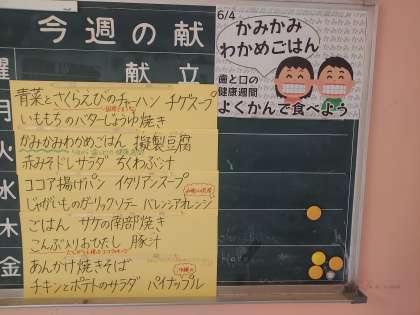 今週の献
曜
献立
月
火
水
木
金
青菜とさくらえびのチャーハン チゲスープ
いももちのバターじょうゆ焼き
かみかみわかめごはん 擬製豆腐
赤みそドレサラダ ちくわぶ汁
ココア揚げパン イタリアンスープ
じゃがいものガーリックソテー バレンシアオレンジ
ごはん サケの南部焼き
こんぶ入りおひたし 豚汁
あんかけ焼きそば
チキンとポテトのサラダ パイナップル
6/4
かみかみ
わかめごはん
歯と口の
健康週間
よくかんで食べよう